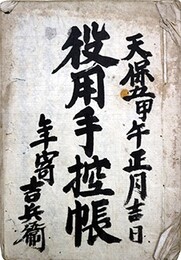 天保五甲午正月吉日
役用手控帳
年寄
吉兵衛